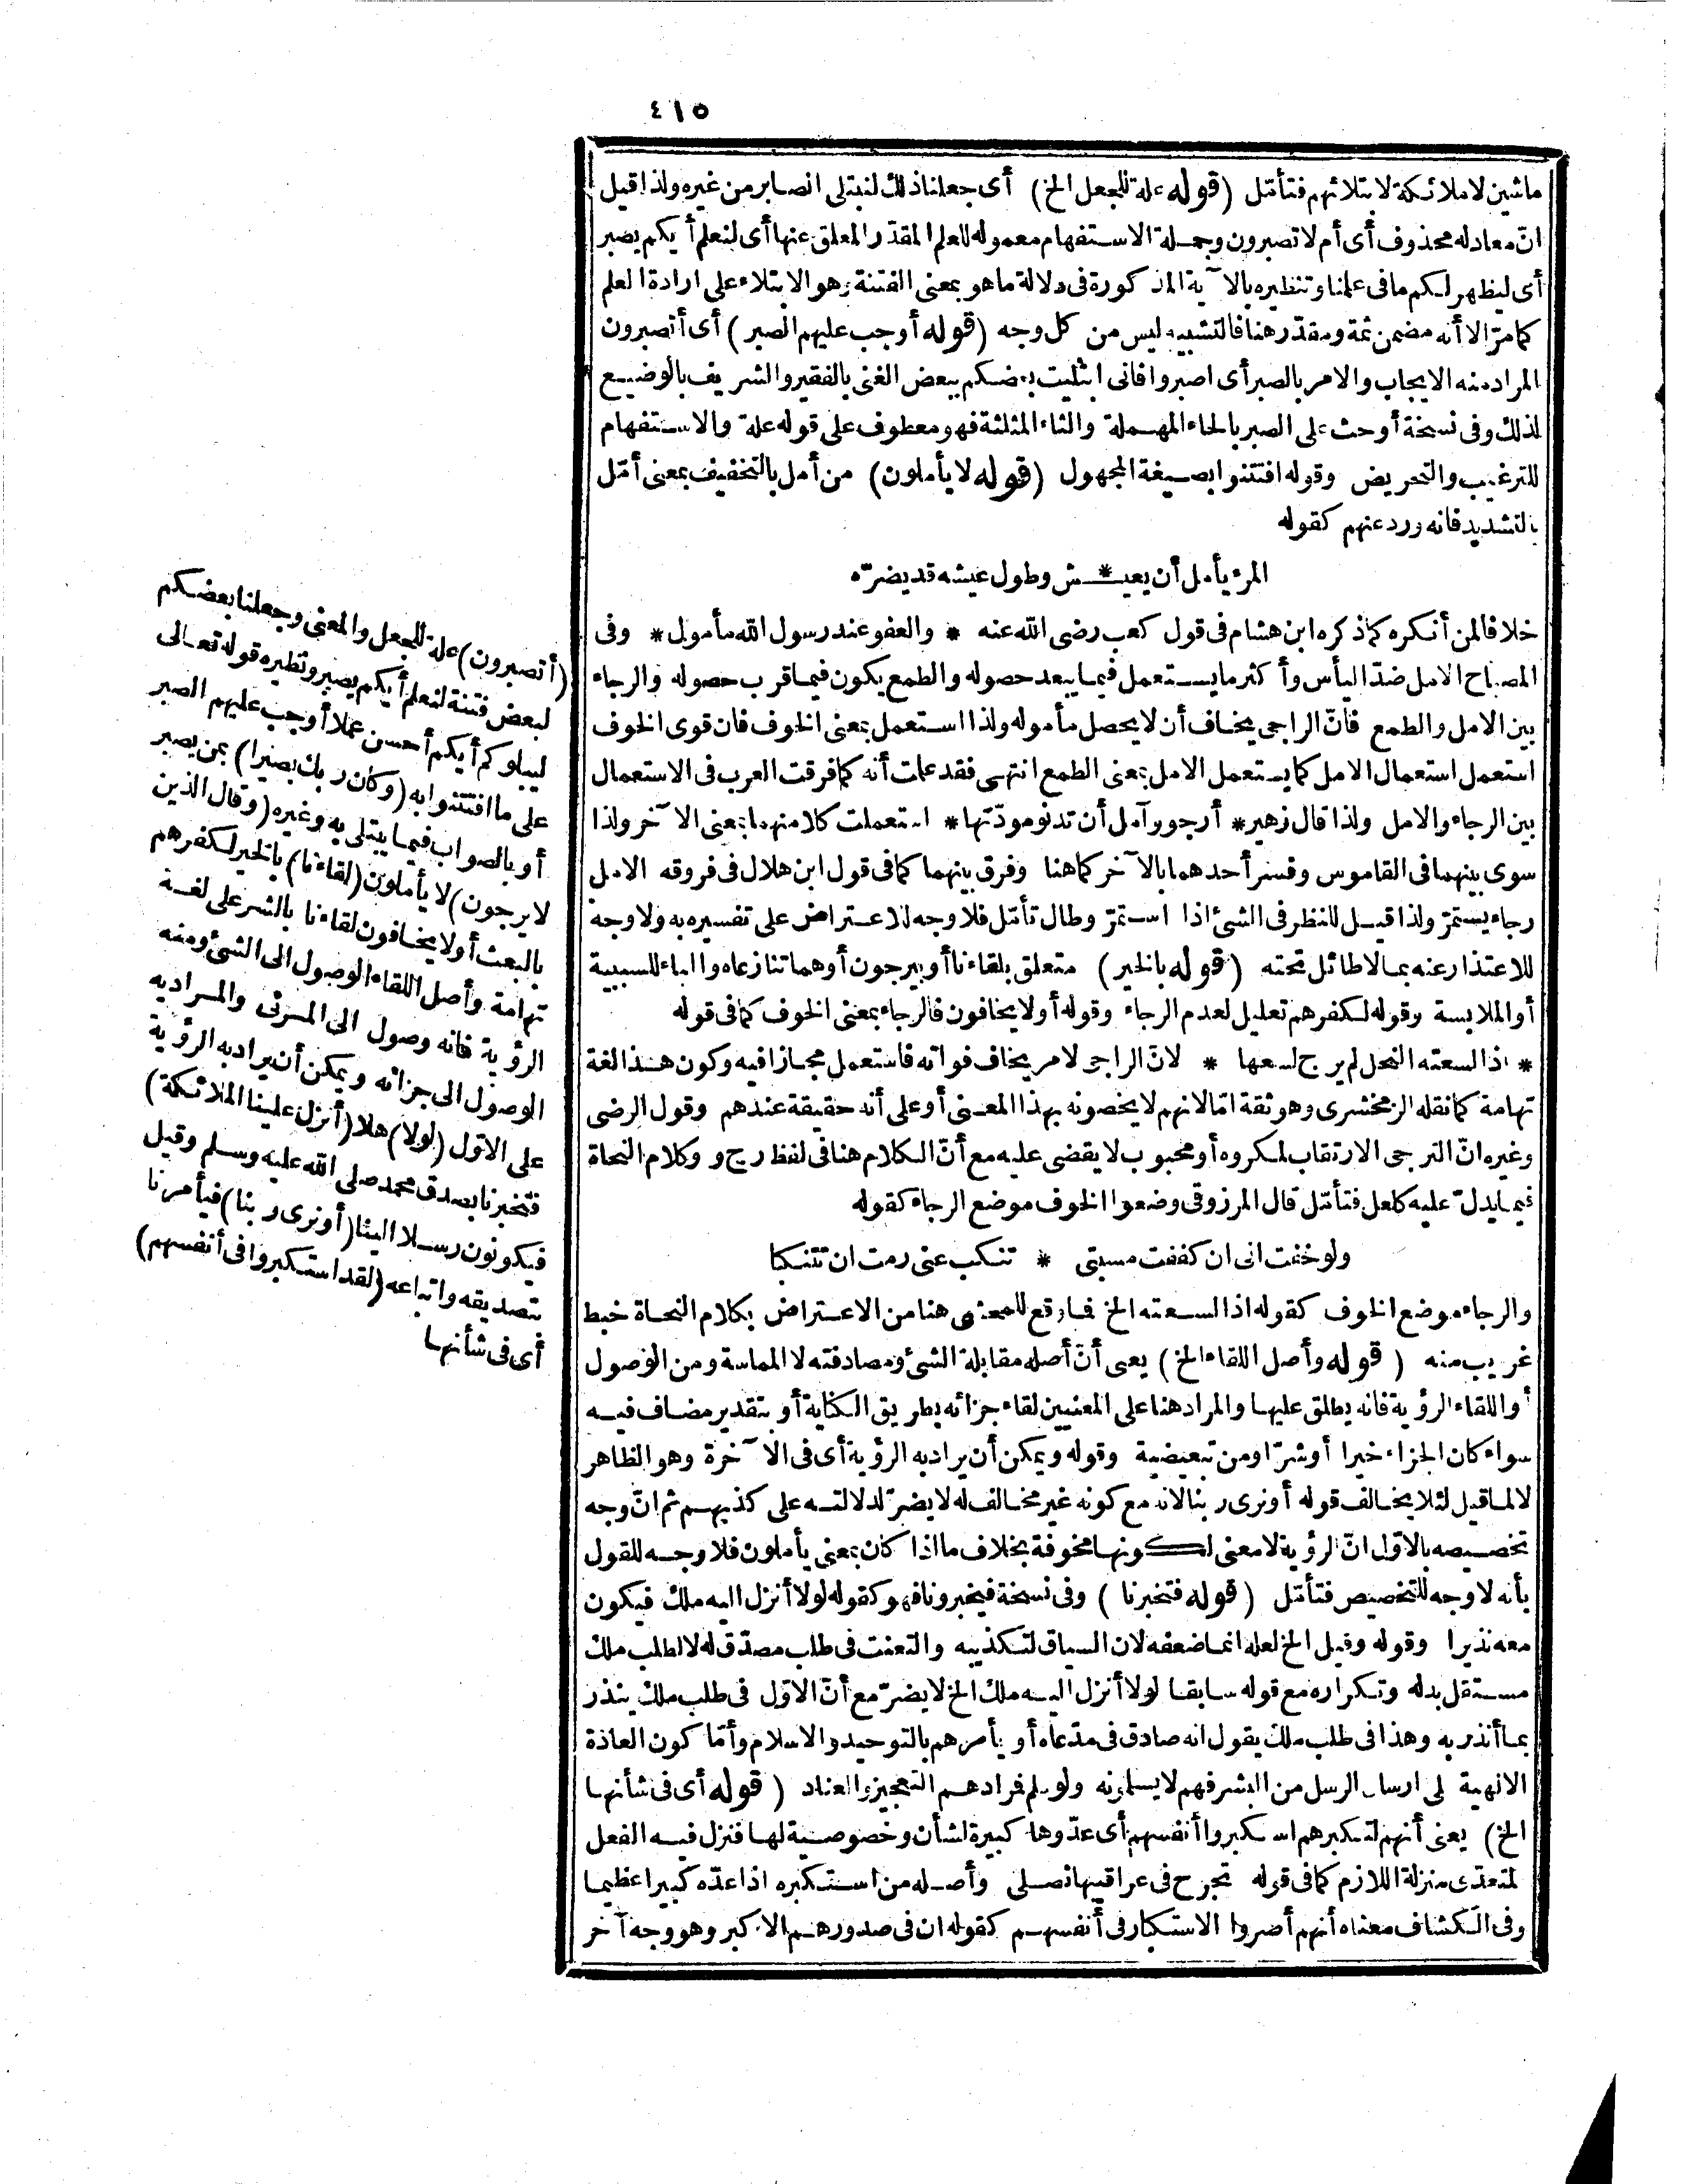 ٤١٥
ماشين لا ملائكة لابتلائهم فتأمّل (قوله علة للجعل الخ) أى جعلنا ذلك لنبتلى الصابر من غيره ولذا قيل
انّ معادله محذوف أى أم لا تصبرون وجملة الاستفهام معموله للعلم المقدّر المعلق عنها أى لنعلم أيكم يصبر
أى ليظهر لكم ما فى علمنا وتنظيره بالآية المذكورة فى دلالة ما هو بمعنى الفتنة وهو الابتلاء على ارادة العلم
كما مرّ الا أنه مضمن ثمة ومقدّر هنا فالتشبيه ليس من كل وجه (قوله أوجب عليهم الصبر) أى أتصبرون
المراد منه الايجاب والامر بالصبر أى اصبروا فانى ابتليت بعضكم ببعض الغنى بالفقير والشريف بالوضيع
لذلك وفى نسخة أو حث على الصبر بالحاء المهملة والثاء المثلثة فهو معطوف على قوله علة والاستفهام
للترغيب والتحريض وقوله افتتنوا بصيغة المجهول (قوله لا يأملون) من أمل بالتخفيف بمعنى أمّل
بالتشديد فانه ورد عنهم كقوله
المرء يأمل أن يعيـ * ـش وطول عيشه قد يضرّه
خلافا لمن أنكره كما ذكره ابن هشام فى قول كعب رضى الله عنه * والعفو عند رسول الله مأمول * وفى
المصباح الامل ضدّ اليأس وأكثر ما يستعمل فيما يبعد حصوله والطمع يكون فيما قرب حصوله والرجاء
بين الامل والطمع فانّ الراجى يخاف أن لا يحصل مأموله ولذا استعمل بمعنى الخوف فان قوى الخوف
استعمل استعمال الامل كما يستعمل الامل بمعنى الطمع انتهى فقد علمت أنه كما فرقت العرب فى الاستعمال
بين الرجاء والامل ولذا قال زهير * أرجو وآمل أن تدنو مودّتها * استعملت كلا منهما بمعنى الآخر ولذا
سوى بينهما فى القاموس وفسر أحدهما بالآخر كما هنا وفرق بينهما كما فى قول ابن هلال فى فروقه الامل
رجاء يستمرّ ولذا قيل للنظر فى الشئ اذا استمرّ وطال تأمّل فلا وجه للاعتراض على تفسيره به ولا وجه
للاعتذار عنه بما لا طائل تحته (قوله بالخير) متعلق بلقاءنا أو بيرجون أو هما تنازعاه والباء للسببية
أو الملابسة وقوله لكفرهم تعليل لعدم الرجاء وقوله أو لا يخافون فالرجاء بمعنى الخوف كما فى قوله
* اذا لسعته النحل لم يرج لسعها * لانّ الراجى لامر يخاف فواته فاستعمل مجازا فيه وكون هذا لغة
تهامة كما نقله الزمخشرى وهو ثقة امّا لانهم لا يخصونه بهذا المعنى أو على أنه حقيقة عندهم وقول الرضى
وغيره انّ الترجى الارتقاب لمكروه أو محبوب لا يقضى عليه مع أنّ الكلام هنا فى لفظ رج و وكلام النحاة
فيما يدلّ عليه كلعل فتأمّل قال المرزوقى وضعوا الخوف موضع الرجاء كقوله
ولو خفت انى ان كففت مسبتى * تنكب عنى رمت ان تتنكبا
والرجاء موضع الخوف كقوله اذا لسعته الخ فما وقع للمعنى هنا من الاعتراض بكلام النحاة خبط
غريب منه (قوله وأصل اللقاء الخ) يعنى أنّ أصله مقابلة الشئ ومصادفته لا المماسة ومن الوصول
أو اللقاء الرؤية فانه يطلق عليها والمراد هنا على المعنيين لقاء جزائه بطريق الكناية أو بتقدير مضاف فيه
سواء كان الجزاء خيرا أو شرّا ومن تبعيضية وقوله ويمكن أن يراد به الرؤية أى فى الآخرة وهو الظاهر
لا لما قيل لئلا يخالف قوله أو نرى ربنا لانه مع كونه غير مخالف له لا يضرّ لدلالته على كذبهم ثم انّ وجه
تخصيصه بالاوّل انّ الرؤية لا معنى لكونها مخوفة بخلاف ما اذا كان بمعنى يأملون فلا وجه للقول
بأنه لا وجه للتخصيص فتأمّل (قوله فتخبرنا) وفى نسخة فيخبرونا فهو كقوله لولا أنزل اليه ملك فيكون
معه نذيرا وقوله وقيل الخ لعله انما ضعفه لان السياق لتكذيبه والتعنت فى طلب مصدّق له لا لطلب ملك
مستقل بدله وتكراره مع قوله سابقا لولا أنزل اليه ملك الخ لا يضرّ مع أنّ الاوّل فى طلب ملك ينذر
بما أنذر به وهذا فى طلب ملك يقول انه صادق فى مدّعاه أو يأمرهم بالتوحيد والاسلام وأمّا كون العادة
الالهية على ارسال الرسل من البشر فهم لا يسلمونه ولو سلم فمرادهم التعجيز والعناد (قوله أى فى شأنها
الخ) يعنى أنهم لتكبرهم استكبروا أنفسهم أى عدّوها كبيرة لشأن وخصوصية لها فنزل فيه الفعل
المتعدّى منزلة اللازم كما فى قوله تجرح فى عراقيبها نصلى وأصله من استكبره اذا عدّه كبيرا عظيما
وفى الكشاف معناه أنهم أضمروا الاستكبار فى أنفسهم كقوله ان فى صدورهم الا كبر وهو وجه آخر
(أتصبرون) علة للجعل والمعنى وجعلنا بعضكم
لبعض فتنة لنعلم أيكم يصبر ونظيره قوله تعالى
ليبلوكم أيكم أحسن عملا أو حث عليهم الصبر
على ما افتتنوا به (وكان ربك بصيرا) بمن يصبر
أو بالصواب فيما يبتلى به وغيره (وقال الذين
لا يرجون) لا يأملون (لقاءنا) بالخير لكفرهم
بالبعث أو لا يخافون لقاءنا بالشر على لغة
تهامة وأصل اللقاء الوصول الى الشئ ومنه
الرؤية فانه وصول الى المرئى والمراد به
الوصول الى جزائه ويمكن أن يراد به الرؤية
على الاوّل (لولا) هلا (أنزل علينا الملائكة)
فتخبرنا بصدق محمد صلى الله عليه وسلم وقيل
فيكونون رسلا الينا (أو نرى ربنا) فيأمرنا
بتصديقه واتباعه (لقد استكبروا فى أنفسهم)
أى فى شأنها